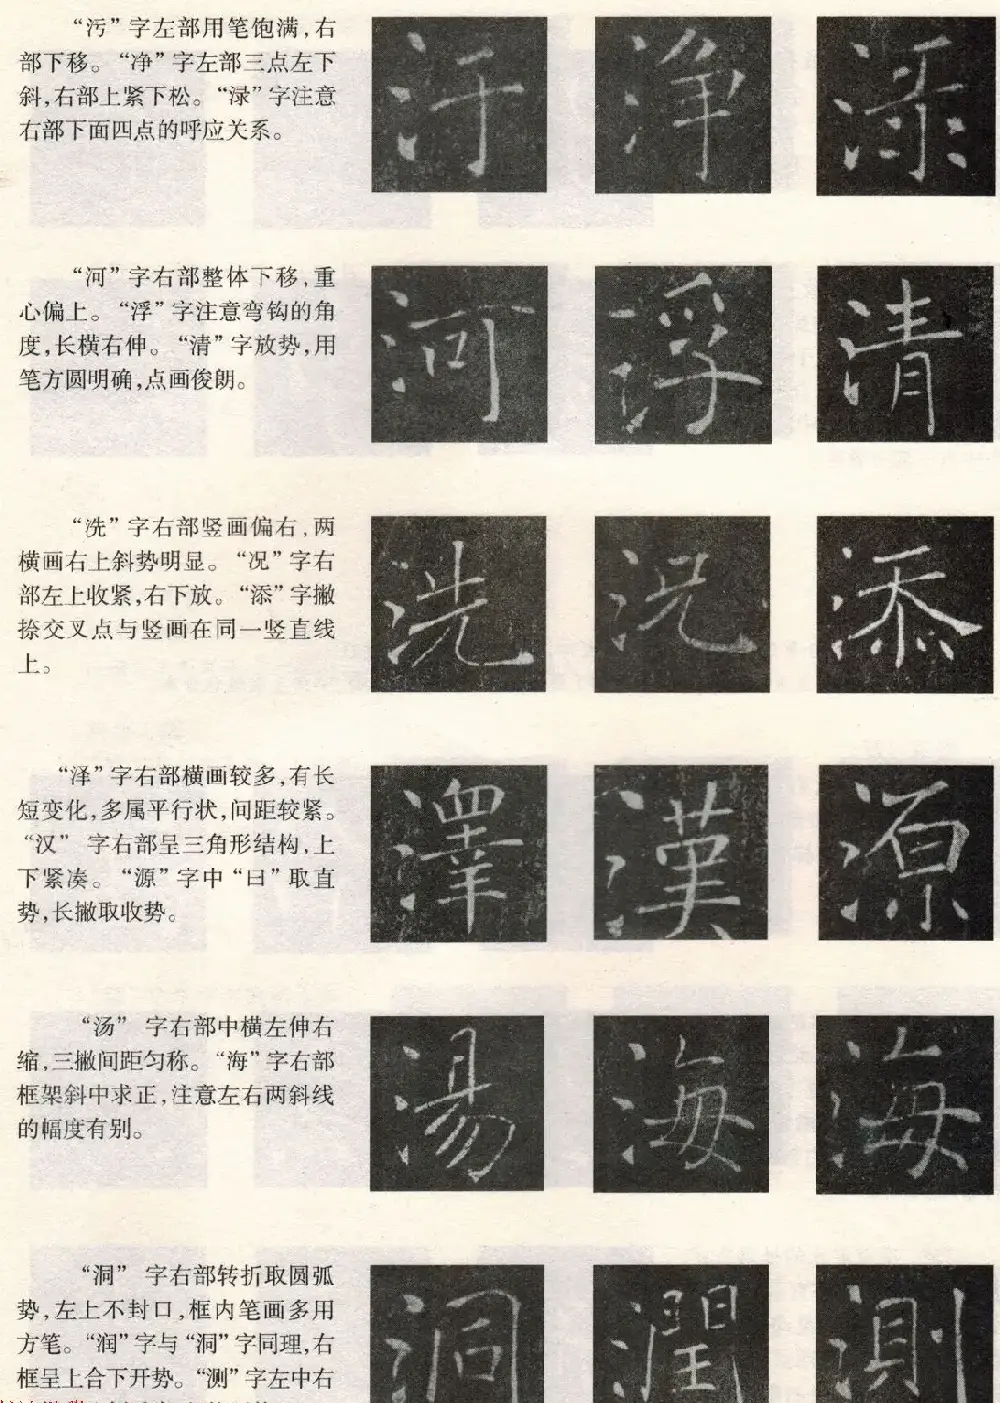 “污”字左部用笔饱满，右
部下移。“净”字左部三点左下
斜，右部上紧下松。“渌”字注意
右部下面四点的呼应关系。
汙 净 渌
“河”字右部整体下移，重
心偏上。“浮”字注意弯钩的角
度，长横右伸。“清”字放势，用
笔方圆明确，点画俊朗。
河 浮 清
“洗”字右部竖画偏右，两
横画右上斜势明显。“况”字右
部左上收紧，右下放。“添”字撇
捺交叉点与竖画在同一竖直线
上。
洗 况 添
“泽”字右部横画较多，有长
短变化，多属平行状，间距较紧。
“汉”字右部呈三角形结构，上
下紧凑。“源”字中“日”取直
势，长撇取收势。
澤 漢 源
“汤”字右部中横左伸右
缩，三撇间距匀称。“海”字右部
框架斜中求正，注意左右两斜线
的幅度有别。
湯 海 海
“洞”字右部转折取圆弧
势，左上不封口，框内笔画多用
方笔。“润”字与“洞”字同理，右
框呈上合下开势。“测”字左中右
洞 潤 測